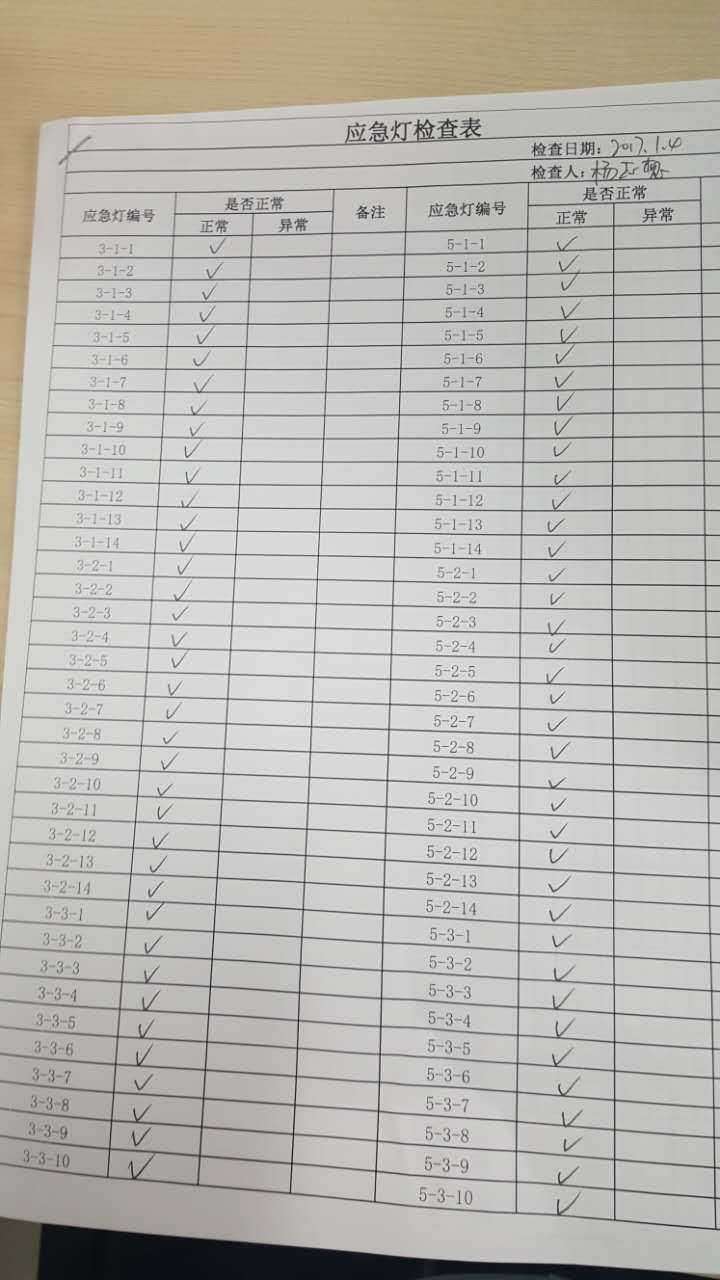 应急灯检查表
检查日期：2017.1.4
检查人：杨
应急灯编号 是否正常 备注 应急灯编号 是否正常
正常 异常 正常 异常
3-1-1 ✓ 5-1-1 ✓
3-1-2 ✓ 5-1-2 ✓
3-1-3 ✓ 5-1-3 ✓
3-1-4 ✓ 5-1-4 ✓
3-1-5 ✓ 5-1-5 ✓
3-1-6 ✓ 5-1-6 ✓
3-1-7 ✓ 5-1-7 ✓
3-1-8 ✓ 5-1-8 ✓
3-1-9 ✓ 5-1-9 ✓
3-1-10 ✓ 5-1-10 ✓
3-1-11 ✓ 5-1-11 ✓
3-1-12 ✓ 5-1-12 ✓
3-1-13 ✓ 5-1-13 ✓
3-1-14 ✓ 5-1-14 ✓
3-2-1 ✓ 5-2-1 ✓
3-2-2 ✓ 5-2-2 ✓
3-2-3 ✓ 5-2-3 ✓
3-2-4 ✓ 5-2-4 ✓
3-2-5 ✓ 5-2-5 ✓
3-2-6 ✓ 5-2-6 ✓
3-2-7 ✓ 5-2-7 ✓
3-2-8 ✓ 5-2-8 ✓
3-2-9 ✓ 5-2-9 ✓
3-2-10 ✓ 5-2-10 ✓
3-2-11 ✓ 5-2-11 ✓
3-2-12 ✓ 5-2-12 ✓
3-2-13 ✓ 5-2-13 ✓
3-2-14 ✓ 5-2-14 ✓
3-3-1 ✓ 5-3-1 ✓
3-3-2 ✓ 5-3-2 ✓
3-3-3 ✓ 5-3-3 ✓
3-3-4 ✓ 5-3-4 ✓
3-3-5 ✓ 5-3-5 ✓
3-3-6 ✓ 5-3-6 ✓
3-3-7 ✓ 5-3-7 ✓
3-3-8 ✓ 5-3-8 ✓
3-3-9 ✓ 5-3-9 ✓
3-3-10 ✓ 5-3-10 ✓